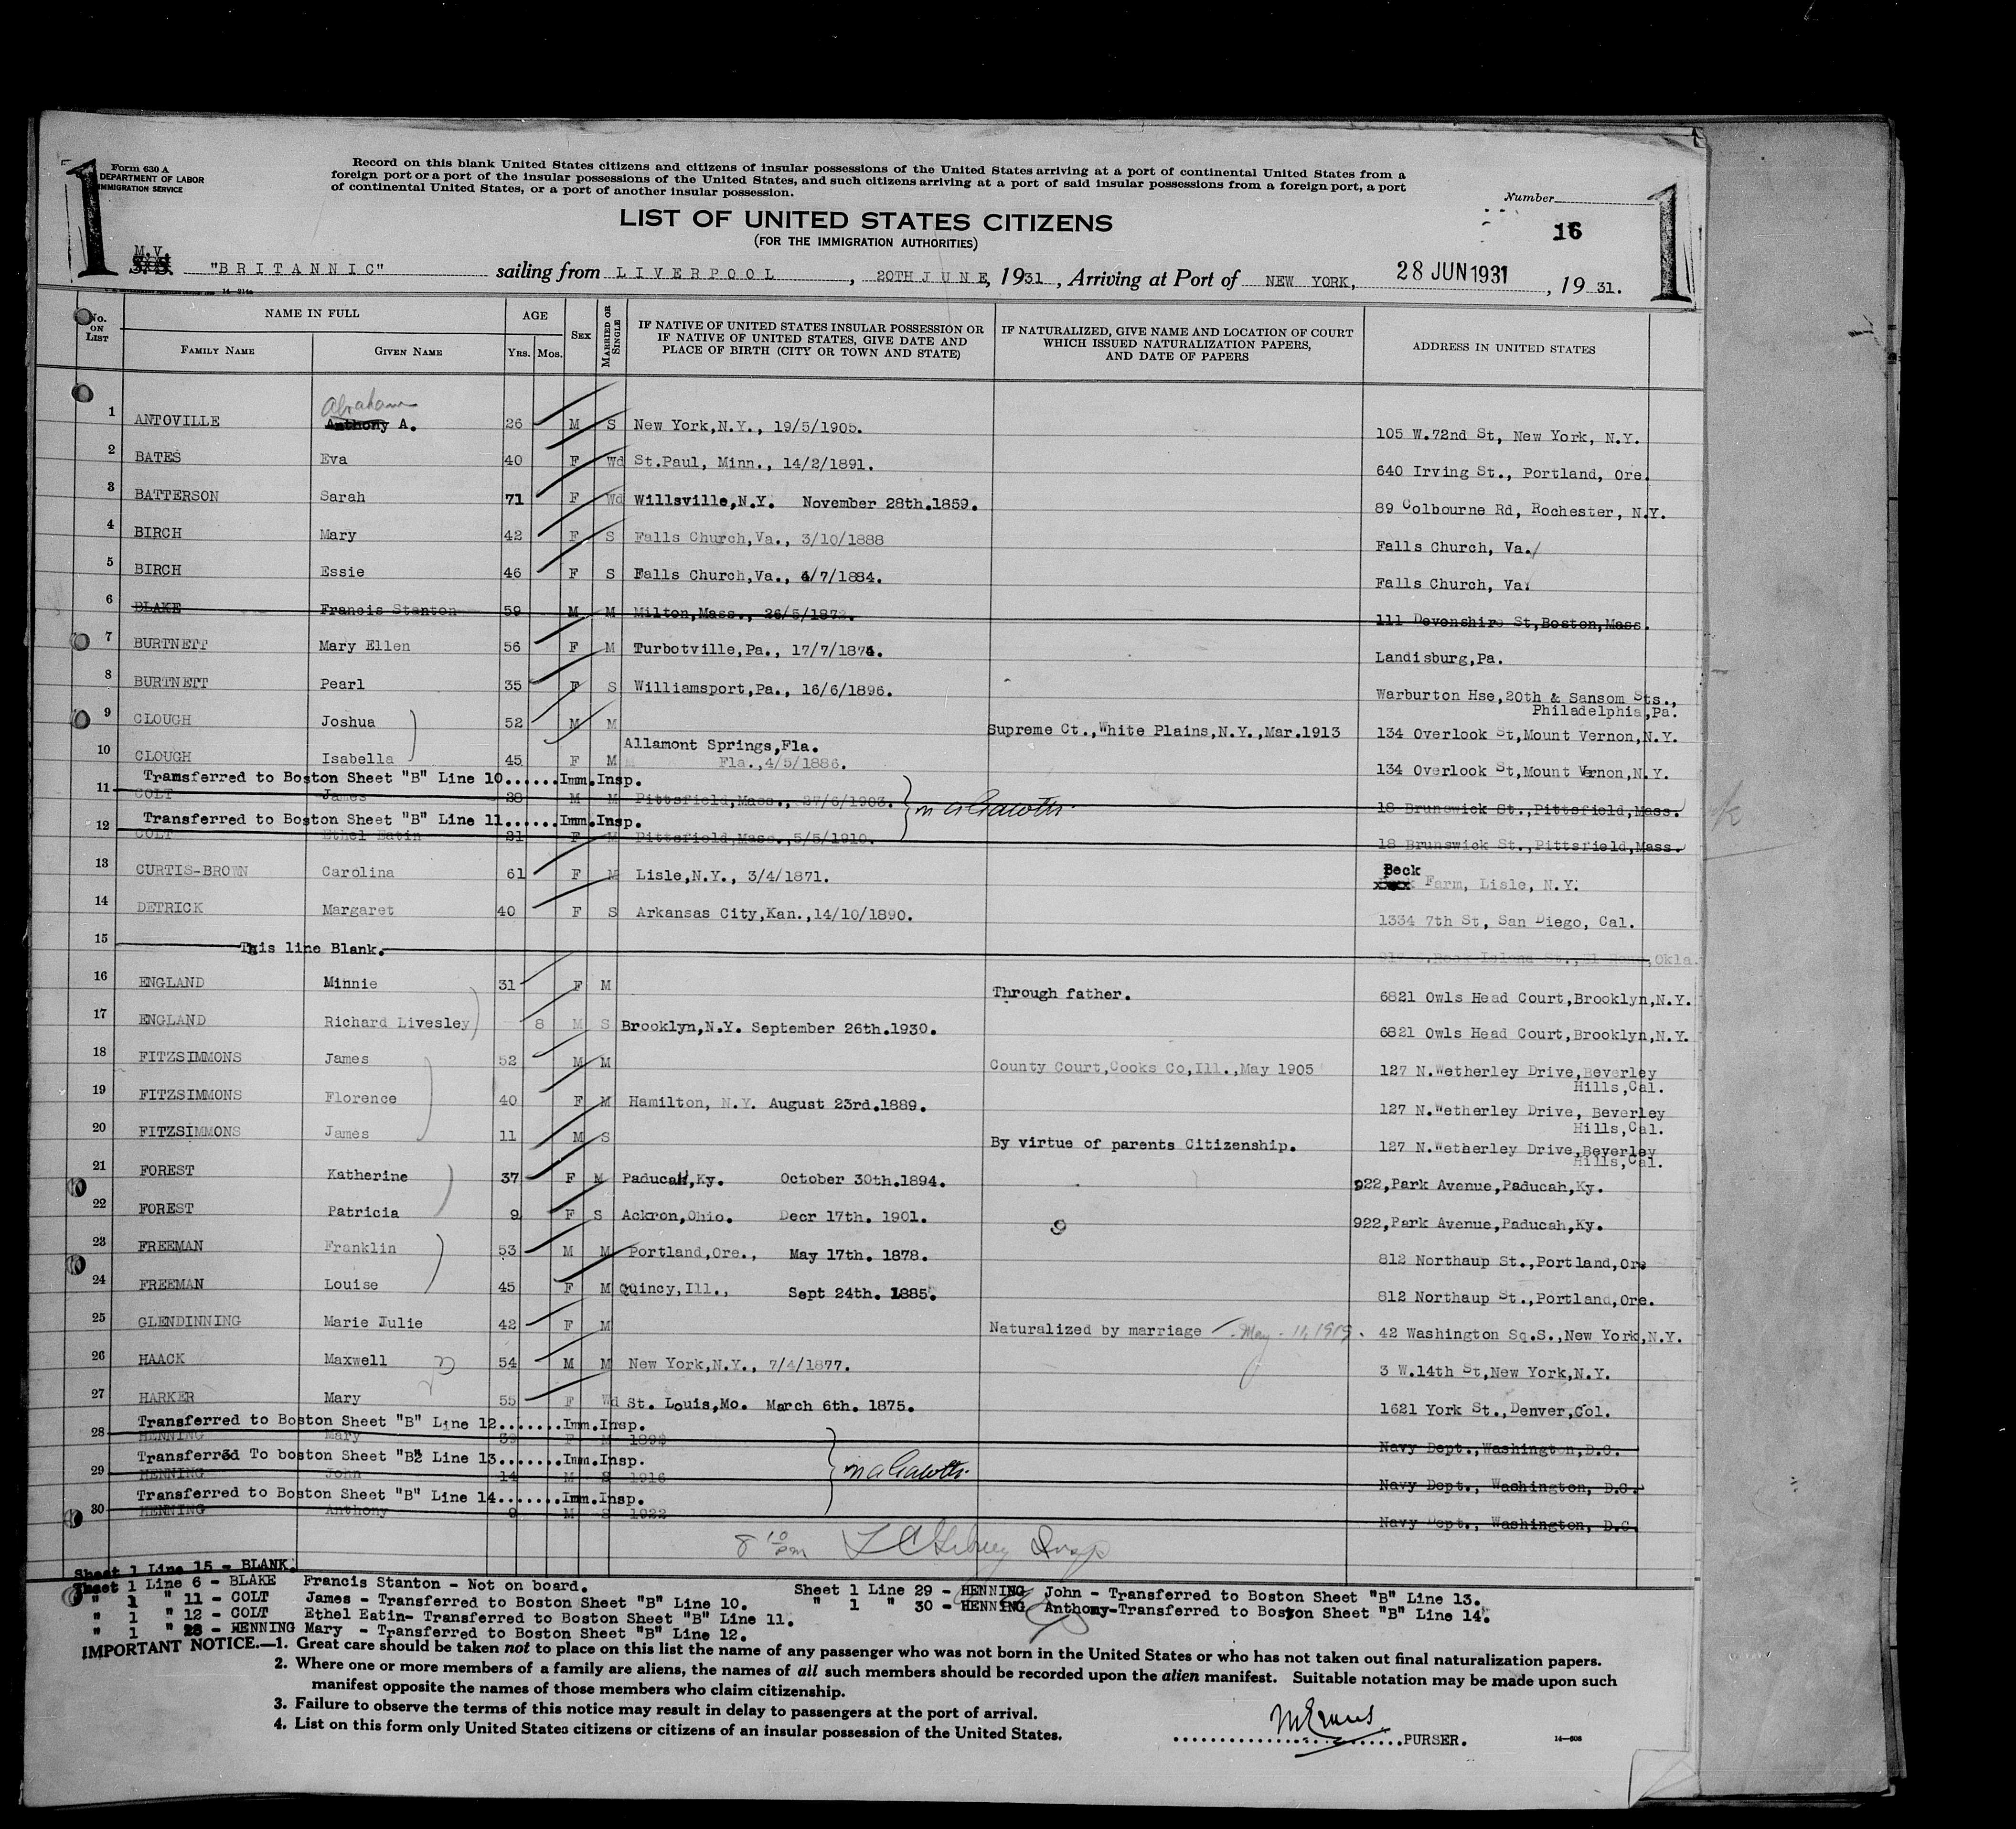 Form 630 A
DEPARTMENT OF LABOR
IMMIGRATION SERVICE
1
1
Record on this blank United States citizens and citizens of insular possessions of the United States arriving at a port of continental United States from a
foreign port or a port of the insular possessions of the United States, and such citizens arriving at a port of said insular possessions from a foreign port, a port
of continental United States, or a port of another insular possession.
Number
LIST OF UNITED STATES CITIZENS
(FOR THE IMMIGRATION AUTHORITIES)
16
M.V. "BRITANNIC" sailing from LIVERPOOL, 20TH JUNE, 1931, Arriving at Port of NEW YORK, 28 JUN 1931, 1931.
No. ON LIST NAME IN FULL AGE SEX MARRIED OR SINGLE IF NATIVE OF UNITED STATES INSULAR POSSESSION OR IF NATIVE OF UNITED STATES, GIVE DATE AND PLACE OF BIRTH (CITY OR TOWN AND STATE) IF NATURALIZED, GIVE NAME AND LOCATION OF COURT WHICH ISSUED NATURALIZATION PAPERS, AND DATE OF PAPERS ADDRESS IN UNITED STATES
FAMILY NAME GIVEN NAME YRS. MOS.
Abraham
1 ANTOVILLE Anthony A. 26 M S New York,N.Y., 19/5/1905. 105 W.72nd St, New York, N.Y.
2 BATES Eva 40 F Wd St.Paul, Minn., 14/2/1891. 640 Irving St., Portland, Ore.
3 BATTERSON Sarah 71 F Wd Willsville,N.Y. November 28th.1859. 89 Colbourne Rd, Rochester, N.Y.
4 BIRCH Mary 42 F S Falls Church,Va., 3/10/1888 Falls Church, Va.
5 BIRCH Essie 46 F S Falls Church,Va., /7/1884. Falls Church, Va.
6 BLAKE Francis Stanton 59 M M Milton,Mass., 26/5/1872. 111 Devonshire St,Boston,Mass.
7 BURTNETT Mary Ellen 56 F M Turbotville,Pa., 17/7/187. Landisburg,Pa.
8 BURTNETT Pearl 35 F S Williamsport,Pa., 16/6/1896. Warburton Hse,20th & Sansom Sts.,
Philadelphia,Pa.
9 CLOUGH Joshua 52 M M Supreme Ct.,White Plains,N.Y.,Mar.1913 134 Overlook St,Mount Vernon,N.Y.
Allamont Springs,Fla.
10 CLOUGH Isabella 45 F M Fla.,4/5/1886. 134 Overlook St,Mount Vernon,N.Y.
Transferred to Boston Sheet "B" Line 10......Imm.Insp.
11 COLT James 28 M M Pittsfield,Mass., 27/6/1903. 18 Brunswick St.,Pittsfield,Mass.
Transferred to Boston Sheet "B" Line 11......Imm.Insp.
12 COLT Ethel Eatin 21 F M Pittsfield,Mass.,5/5/1910. 18 Brunswick St.,Pittsfield,Mass.
13 CURTIS-BROWN Carolina 61 F M Lisle,N.Y., 3/4/1871. Beck Farm, Lisle, N.Y.
14 DETRICK Margaret 40 F S Arkansas City,Kan.,14/10/1890. 1334 7th St, San Diego, Cal.
15 This line Blank.
16 ENGLAND Minnie 31 F M Through father. 6821 Owls Head Court,Brooklyn,N.Y.
17 ENGLAND Richard Livesley 8 M S Brooklyn,N.Y. September 26th.1930. 6821 Owls Head Court,Brooklyn,N.Y.
18 FITZSIMMONS James 52 M M County Court,Cooks Co,Ill.,May 1905 127 N.Wetherley Drive,Beverley
Hills,Cal.
19 FITZSIMMONS Florence 40 F M Hamilton, N.Y. August 23rd.1889. 127 N.Wetherley Drive, Beverley
Hills,Cal.
20 FITZSIMMONS James 11 M S By virtue of parents Citizenship. 127 N.Wetherley Drive,Beverley
Hills,Cal.
21 FOREST Katherine 37 F M Paducah,Ky. October 30th.1894. 922,Park Avenue,Paducah,Ky.
22 FOREST Patricia 9 F S Ackron,Ohio. Decr 17th. 1901. 922,Park Avenue,Paducah,Ky.
23 FREEMAN Franklin 53 M M Portland,Ore., May 17th. 1878. 812 Northaup St.,Portland,Ore
24 FREEMAN Louise 45 F M Quincy,Ill., Sept 24th. 1885. 812 Northaup St.,Portland,Ore.
25 GLENDINNING Marie Julie 42 F M Naturalized by marriage - May - 11, 1919. 42 Washington Sq.S.,New York,N.Y.
26 HAACK Maxwell 54 M M New York,N.Y., 7/4/1877. 3 W.14th St,New York,N.Y.
27 HARKER Mary 55 F Wd St. Louis,Mo. March 6th. 1875. 1621 York St.,Denver,Col.
Transferred to Boston Sheet "B" Line 12.......Imm.Insp.
28 HENNING Mary 39 F M Navy Dept.,Washington,D.C.
Transferred To boston Sheet "B" Line 13.......Imm.Insp.
29 HENNING John 14 M S 1916 Navy Dept., Washington, D.C.
Transferred to Boston Sheet "B" Line 14.......Imm.Insp.
30 HENNING Anthony 9 M S 1922 Navy Dept., Washington, D.C.
8 10 pm Insp
Sheet 1 Line 15 - BLANK.
Sheet 1 Line 6 - BLAKE Francis Stanton - Not on board.
" 1 " 11 - COLT James - Transferred to Boston Sheet "B" Line 10.
" 1 " 12 - COLT Ethel Eatin- Transferred to Boston Sheet "B" Line 11.
" 1 " 28 - HENNING Mary - Transferred to Boston Sheet "B" Line 12.
Sheet 1 Line 29 - HENNING John - Transferred to Boston Sheet "B" Line 13.
" 1 " 30 - HENNING Anthony-Transferred to Boston Sheet "B" Line 14.
IMPORTANT NOTICE.—1. Great care should be taken not to place on this list the name of any passenger who was not born in the United States or who has not taken out final naturalization papers.
2. Where one or more members of a family are aliens, the names of all such members should be recorded upon the alien manifest. Suitable notation may be made upon such
manifest opposite the names of those members who claim citizenship.
3. Failure to observe the terms of this notice may result in delay to passengers at the port of arrival.
4. List on this form only United States citizens or citizens of an insular possession of the United States.
PURSER.